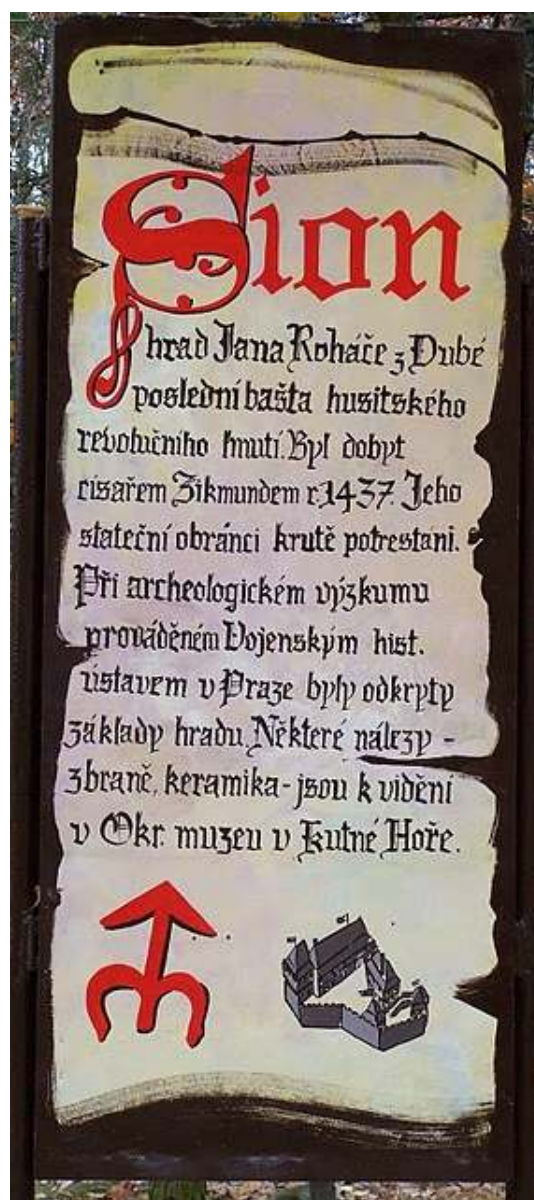 Sion
hrad Jana Roháče z Dubé
poslední bašta husitského
revolučního hnutí. Byl dobyt
císařem Zikmundem r. 1437. Jeho
stateční obránci krutě potrestáni.
Při archeologickém výzkumu
prováděném Vojenským hist.
ústavem v Praze byly odkryty
základy hradu. Některé nálezy -
zbraně, keramika - jsou k vidění
v Okr. muzeu v Kutné Hoře.